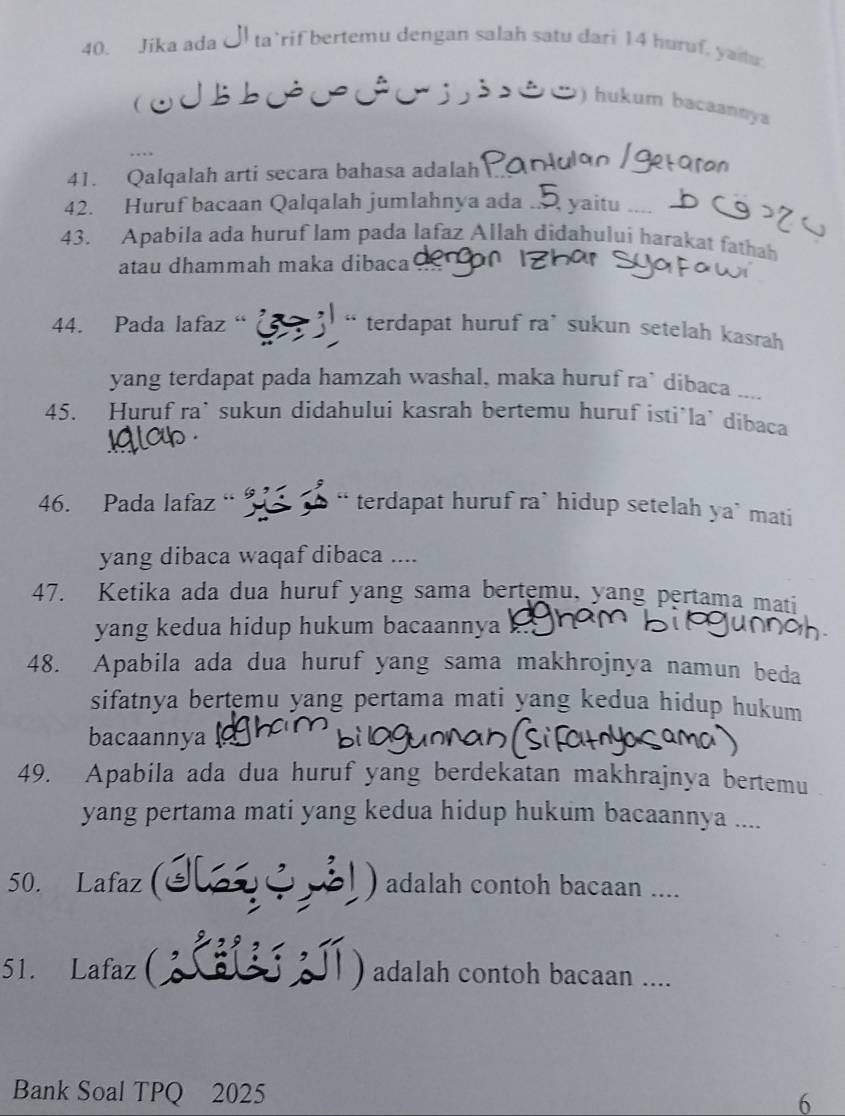 40. Jika ada ال ta`rif bertemu dengan salah satu dari 14 huruf, yaitu:
(ت ث د ذ ر ز س ش ص ض ط ظ ل ن) hukum bacaannya
....
41. Qalqalah arti secara bahasa adalah Pantulan / getaran
42. Huruf bacaan Qalqalah jumlahnya ada ... 5, yaitu ....
43. Apabila ada huruf lam pada lafaz Allah didahului harakat fathah
atau dhammah maka dibaca dengan Izhar Syafawi
44. Pada lafaz “ اِرْجِعِيْ “ terdapat huruf ra’ sukun setelah kasrah
yang terdapat pada hamzah washal, maka huruf ra` dibaca ....
45. Huruf ra` sukun didahului kasrah bertemu huruf isti`la` dibaca
Iqlab.
46. Pada lafaz “ هُوَ خَيْرٌ “ terdapat huruf ra` hidup setelah ya’ mati
yang dibaca waqaf dibaca ....
47. Ketika ada dua huruf yang sama bertemu, yang pertama mati
yang kedua hidup hukum bacaannya Idgham bilagunnah.
48. Apabila ada dua huruf yang sama makhrojnya namun beda
sifatnya bertemu yang pertama mati yang kedua hidup hukum
bacaannya Idgham bilagunnah (sifatnya sama)
49. Apabila ada dua huruf yang berdekatan makhrajnya bertemu
yang pertama mati yang kedua hidup hukum bacaannya ....
50. Lafaz (اِضْرِبْ بِعَصَاكَ) adalah contoh bacaan ....
51. Lafaz (اَلَمْ نَخْلُقْكُمْ) adalah contoh bacaan ....
Bank Soal TPQ 2025
6